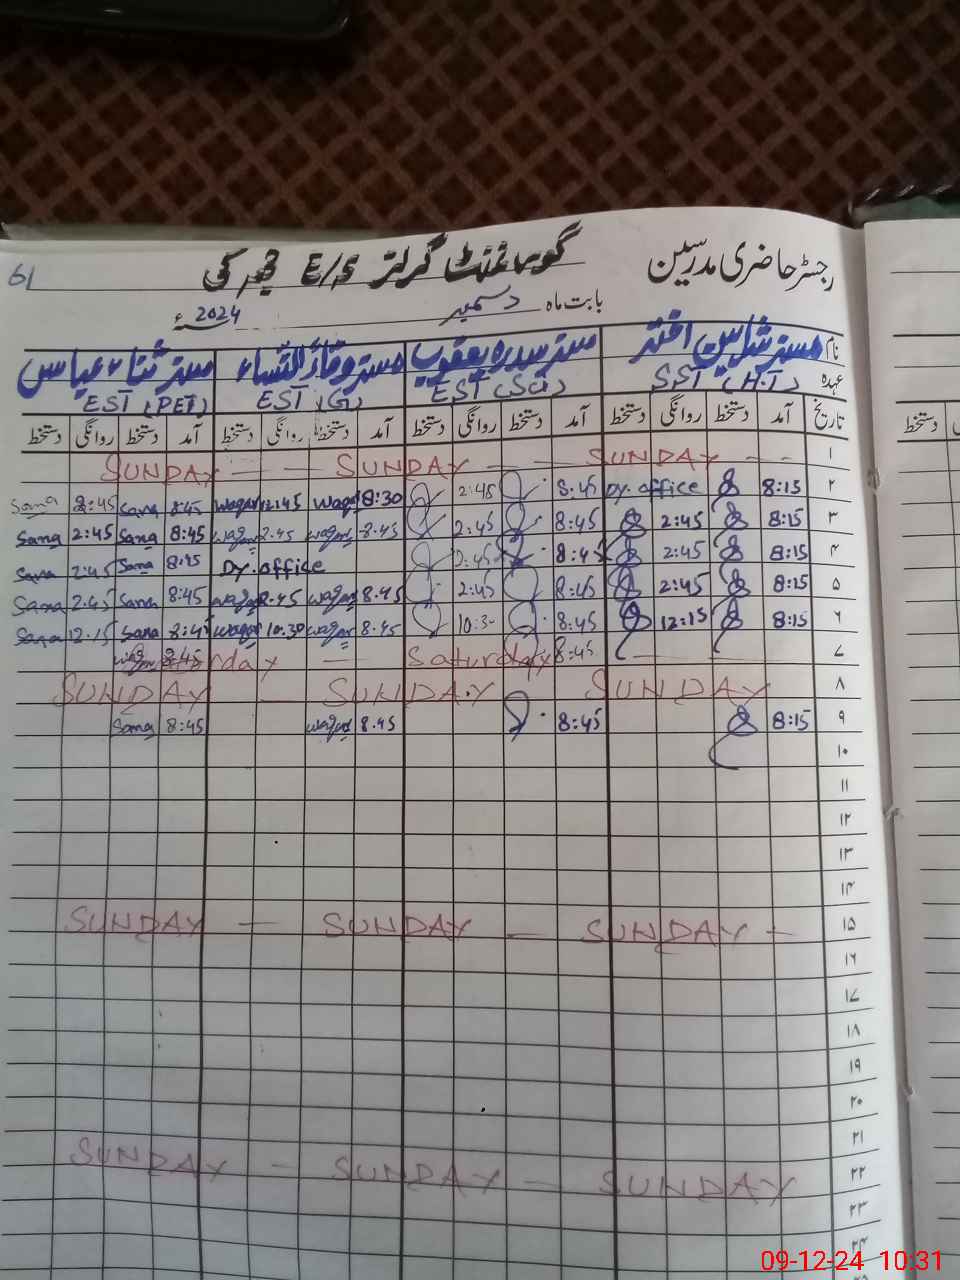 61
رجسٹر حاضری مدرسین گورنمنٹ گرلز E/S
بابت ماہ دسمبر 2024ء
نام مسز اختر مسز سدرہ یعقوب مسز وقار النساء مسز ثناء عباس
عہدہ SST (H.T) EST (Sci) EST (G) EST (PET)
تاریخ آمد دستخط روانگی دستخط آمد دستخط روانگی دستخط آمد دستخط روانگی دستخط آمد دستخط روانگی دستخط دستخط
۱ SUNDAY - - SUNDAY - - SUNDAY - -
۲ 8:15 Dy. office 8:45 2:45 8:30 Waqar 12:45 Waqar 8:45 Sana 2:45 Sana
۳ 8:15 2:45 8:45 2:45 8:45 Waqar 2:45 Waqar 8:45 Sana 2:45 Sana
۴ 8:15 2:45 8:45 2:45 Dy. office 8:45 Sana 2:45 Sana
۵ 8:15 2:45 8:45 2:45 8:45 Waqar 2:45 Waqar 8:45 Sana 2:45 Sana
۶ 8:15 12:15 8:45 10:30 8:45 Waqar 10:30 Waqar 8:45 Sana 12:15 Sana
۷ — — 8:45 Saturday — 8:45
۸ SUNDAY — SUNDAY SUNDAY
۹ 8:15 8:45 8:45 Waqar 8:45 Sana
۱۰
۱۱
۱۲
۱۳
۱۴
۱۵ SUNDAY — SUNDAY — SUNDAY —
۱۶
۱۷
۱۸
۱۹
۲۰
۲۱
۲۲ SUNDAY — SUNDAY — SUNDAY
۲۳
۲۴
09-12-24 10:31